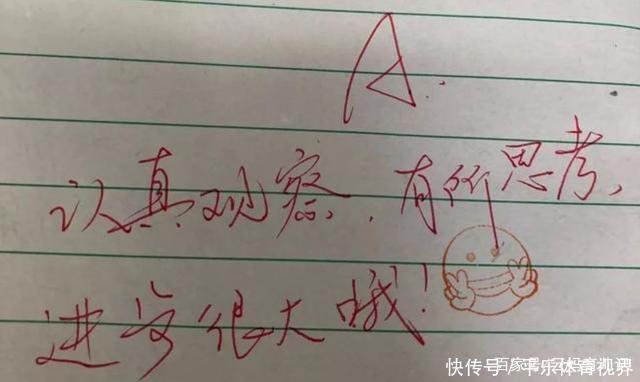 A.
认真观察,有所思考,
进步很大哦!
快传号/平乐体育视界